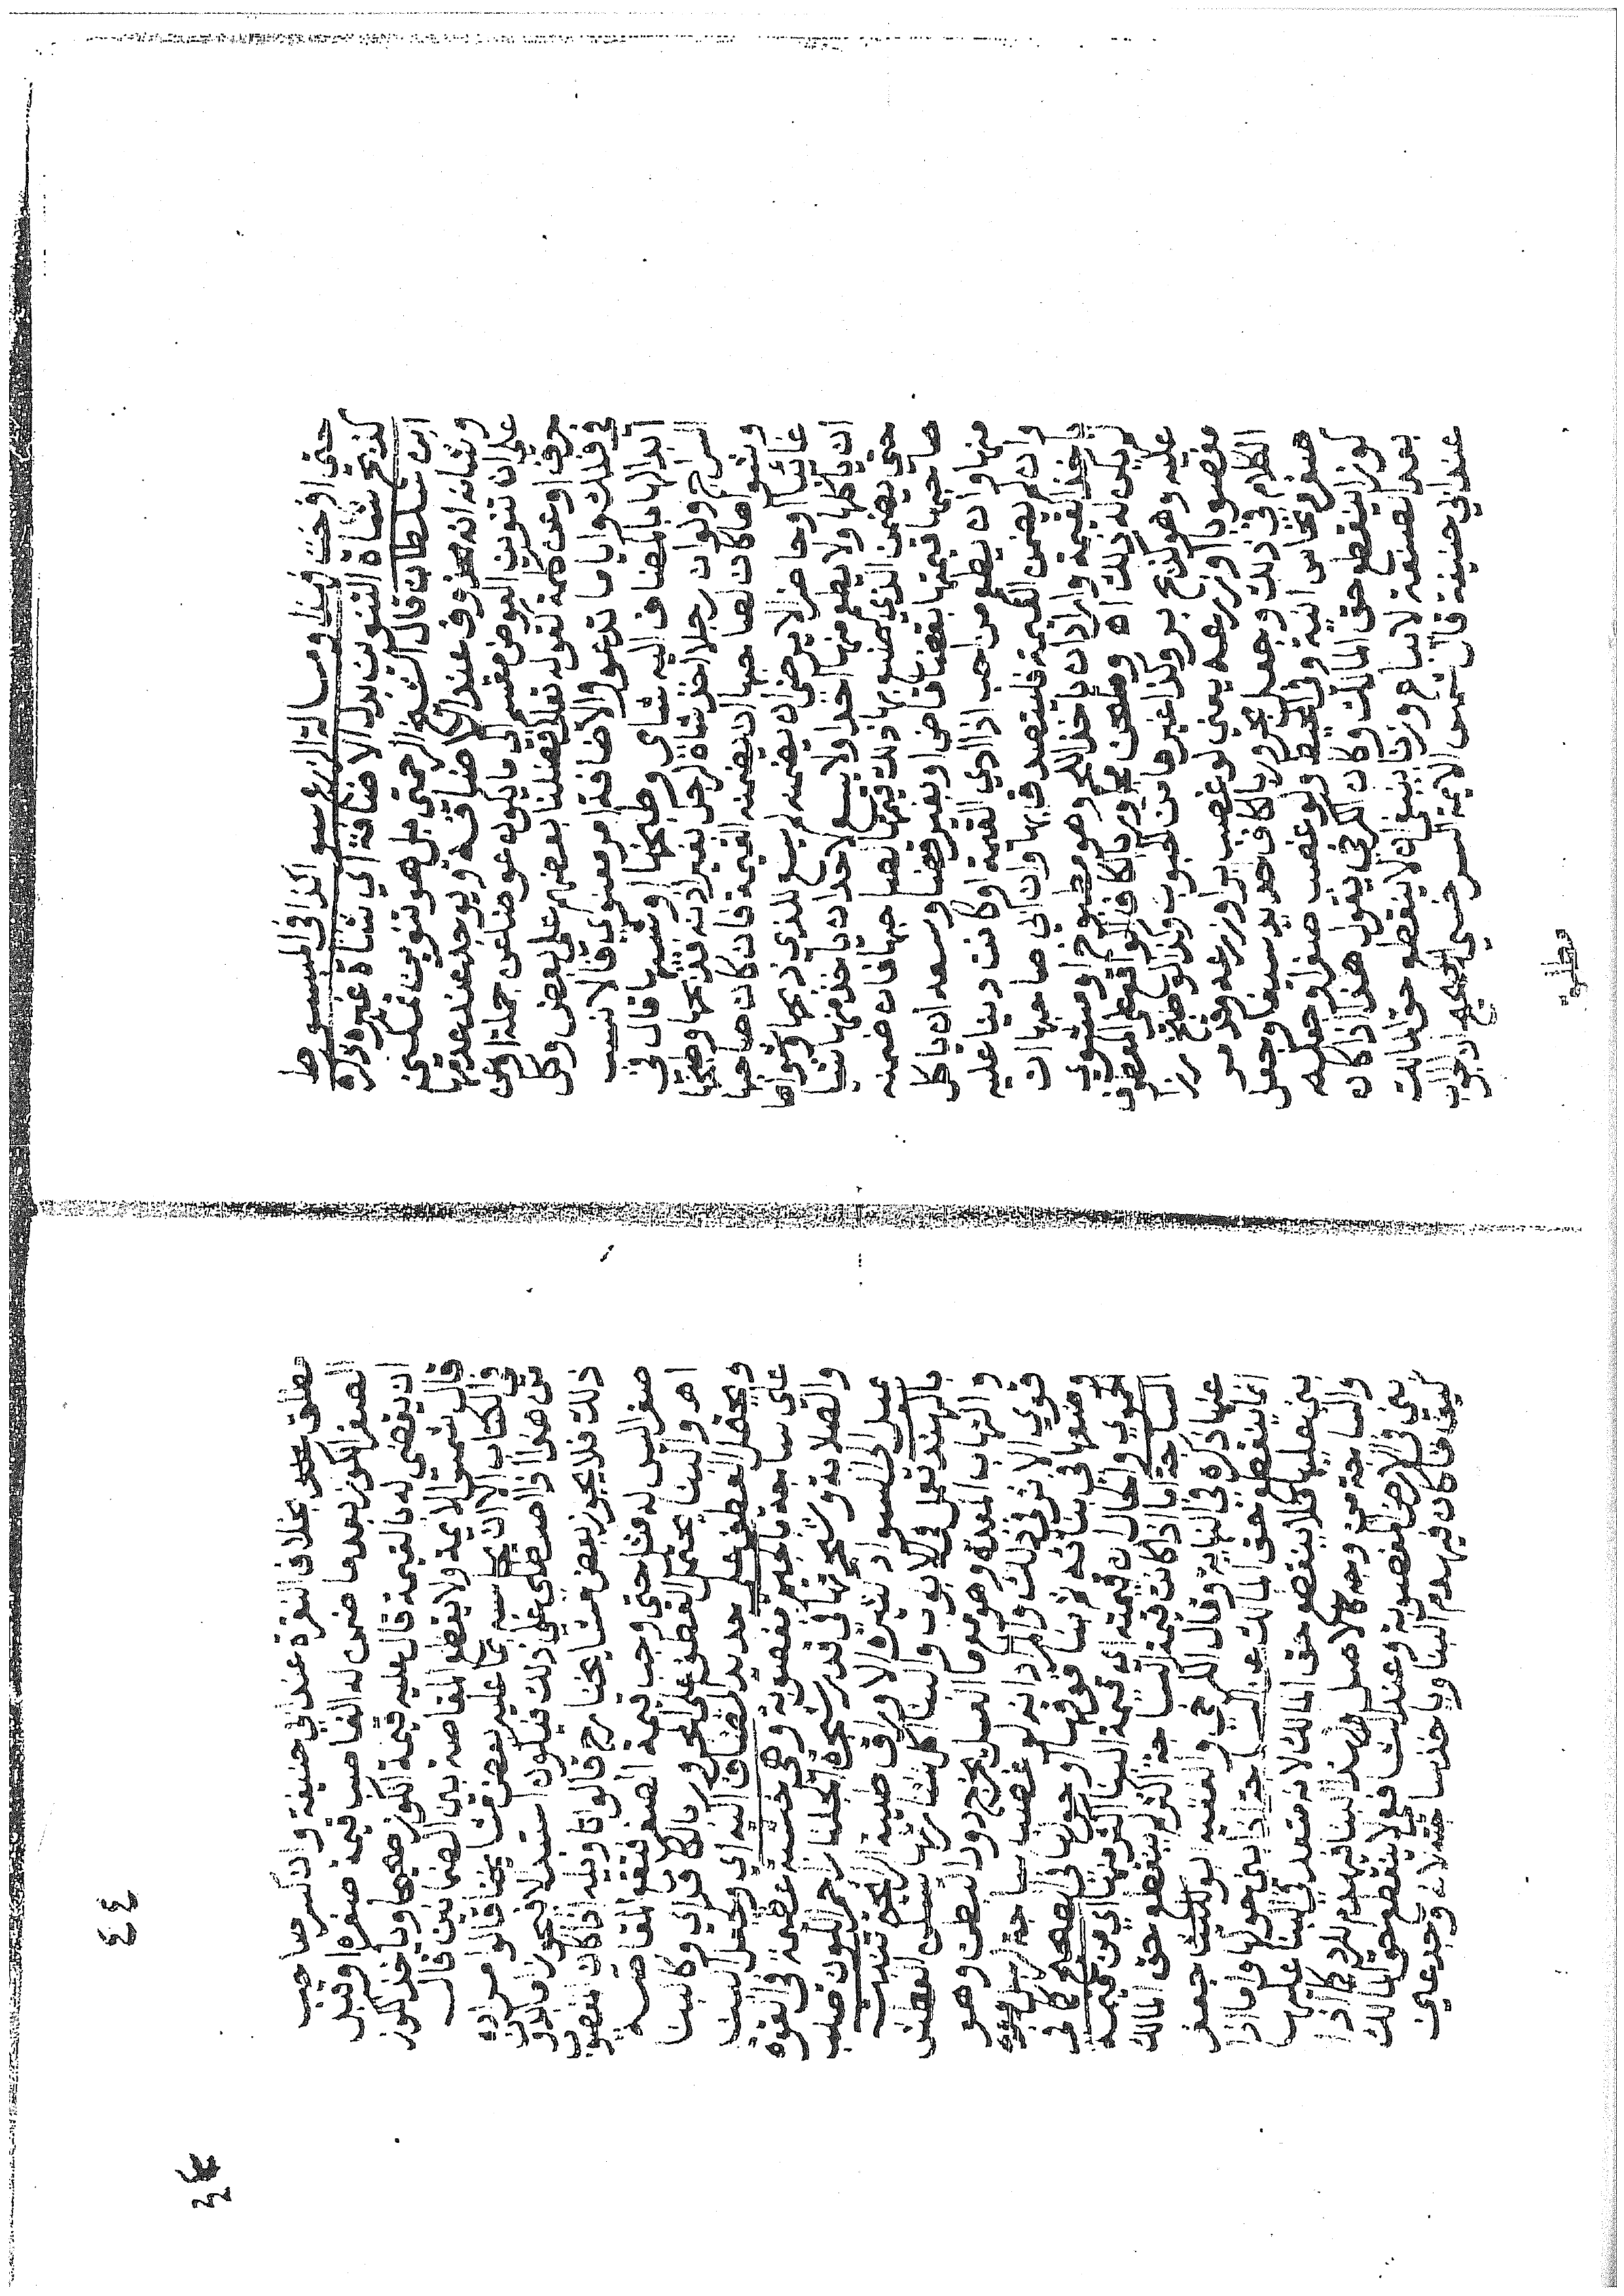 حتى افرخت فيها ومسالة الزرع سوا كذا في المبسوط
كذبح شاة التنوين بدل الاضافة اي شاة غيره ذكره
ابن سلطان قال الشيخ الرحمتي بل هو تنوين تمكين
وشانه انه محذوف عند الاضافة ويوجد عند عدمها
على ان تنوين العوض منقسم الى ما يكون عوضا عن جملة او عن
حرف او عن كلمة كقوله تعالى فضلنا بعضهم على بعض وكل
في فلك واياما تدعوا والاضافة امر معنوي
ابدالها بالمضاف اليه شاي وطبخها او شيها قال في
السراج ولو ان رجلا اخذ شاة لرجل بغير اذنه فذبحها وطبخها
وشواها كان لصاحبها ان يضمنه القيمة فان كان صاحبها
غائبا او حاضرا لا يرضى ان يضمنه لم يسع للذي ذبحها وشواها
ان ياكلها ولا يطعم منها احدا ولا يسع لاحد ان ياخذ منها شيئا
حتى يضمن الذي صنع بها ذلك قيمتها لصاحبها فان ضمنه
صاحبها قيمتها بقضا قاض او بغير قضا وسعه ان ياكل
منها وان يطعم من احب اذا ادي القيمة او كانت دينا عليه
وان لم يضمن القيمة فليتصدق بها وان ابى صاحبها ان
ياخذ القيمة واراد ان ياخذ اللحم وهو مطبوخ او مشوي
لم يكن له ذلك اه وطحن مجرور بالكاف الواقع على المعطوف
عليه وهو كذبح بر وكذا غيرها من الحبوب وكذا لو طبخ رزا
مغصوبا او زرعه يعني لو غصب برا وزرعه وقد مر
الكلام في ذلك وجعل مجرور بالكاف حديد سيفا وجعل
صفر نحاس انية وفي المحيط ولو غصب صفرا وجعله
كوزا ينقطع حق المالك وكان الكرخي يقول هذا اذا كان
بعد الصنعة لا يباع وزنا ينبغي ان لا ينقطع حق المالك
عند ابي حنيفة قال شمس الايمة السرخسي الصحيح ان الجواب
مطلب
مطلق بخلاف النقرة عند ابي حنيفة وان كسر صاحب
الصفر الكوز بعدما ضمن له الغاصب قيمة صفره وقبل
ان يقضي له بالقيمة قال عليه قيمة الكوز صحيحا وياخذ الكوز
قال شمس الايمة ولا يقطع المقاصة بين الضمانين قال
في الكتاب الا ان يحاسبه بما عليه بعض مشايخنا قالوا مراده
من هذا اذا اصطلحا على ذلك فيكون استبدالا فيجوز اما بدون
ذلك فلا يجوز بعض مشايخنا رح قالوا تاويله اذا كان المغصوب
صفرا ليس له مثل حتى وجب قيمة الصفر فتقع المقاصة
اهـ والبنا يحتمل العطف على المجرور بالكاف اي وكالبنا
ويحتمل العطف على حديد المضاف اليه اي وكجعل البنا
على ساجة بالجيم مغصوبة وهي خشبة عظيمة في القوة
والصلابة وشجرتها في قدر شجرة الجلنار احمر اللون صلب
يميل الى السواد الاوراق طيبة الرائحة تنبت
بالهند تعمل في الابواب والبنا نشارتها تسكن العطش
والتهاب المعدة وهو مع ما العسل يخرج دود البطن وهو
قوي الاثر في ذلك والمراد انه لو غصب ساجة
وضعها في بنائه ثم بنا فوقها او حولها في الصحيح كما في
الحموي والحال ان قيمته اي قيمة البنا اكثر منها اي من قيمة
الساجة اما اذا كانت قيمة الساجة اكثر لم ينقطع حق المالك
عنها ذكره في النهاية وقال الكرخي والفقيه جعفر
انما ينقطع حق المالك عن الساجة اذا بنى حولها واما اذا
بنى عليها فلا ينقطع حق المالك لانه متعد في البنا عليها
والساجة من وجه كالاصل لهذا البنا فيهدم للرد كما اذا
بنى في الارض المغصوبة وعند الشافعي لا ينقطع حق المالك
كيف ما كان فيهدم البنا وياخذ ساجته لانه وجد عين
٤٤